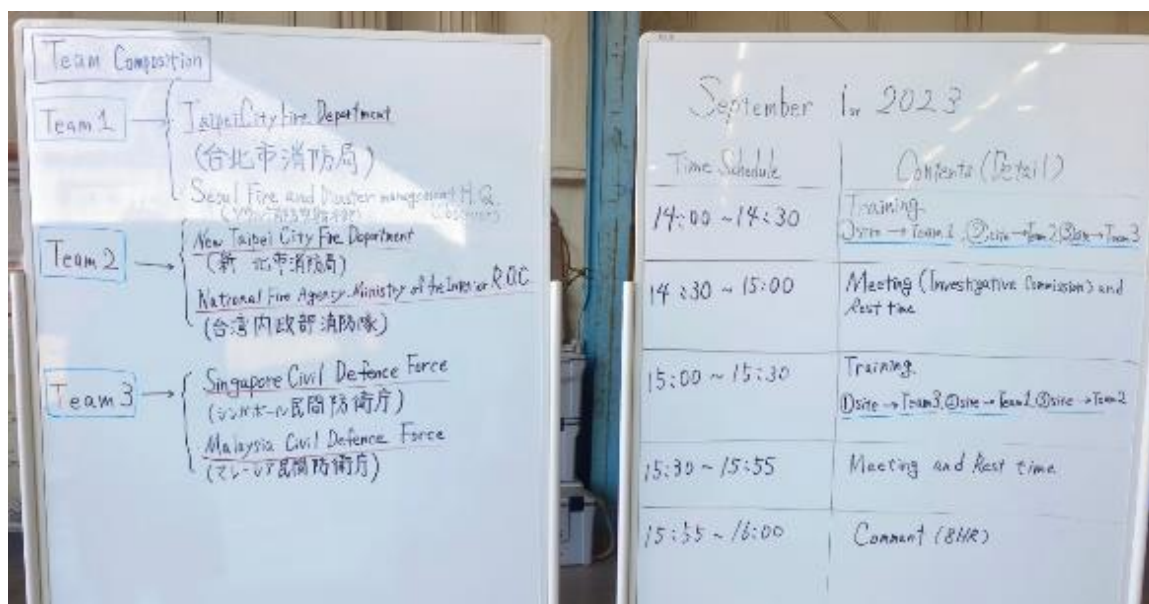 Team Composition
Team 1 → Taipei City Fire Department
(台北市消防局)
Seoul Fire and Disaster management H.Q.
Team 2 → New Taipei City Fire Department
(新北市消防局)
National Fire Agency Ministry of the Interior R.O.C
(台湾内政部消防隊)
Team 3 → Singapore Civil Defence Force
(シンガポール民間防衛庁)
Malaysia Civil Defence Force
(マレーシア民間防衛庁)
September 1st 2023
Time Schedule Contents (Detail)
14:00 ~ 14:30 Training
①site → Team 1, ②site → Team 2, ③site → Team 3
14:30 ~ 15:00 Meeting (Investigative Commission) and
Rest time
15:00 ~ 15:30 Training
①site → Team 3, ②site → Team 1, ③site → Team 2
15:30 ~ 15:55 Meeting and Rest time
15:55 ~ 16:00 Comment